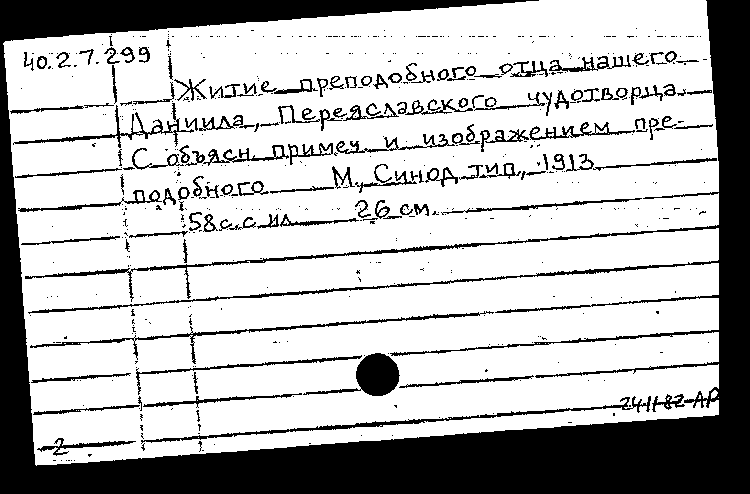 40.2.7.299
Житие преподобного отца нашего
Даниила, Переяславского чудотворца.
С объясн. примеч. и изображением пре-
подобного М., Синод. тип., 1913.
58 с. с ил. 26 см.
24 11 82 АР
2